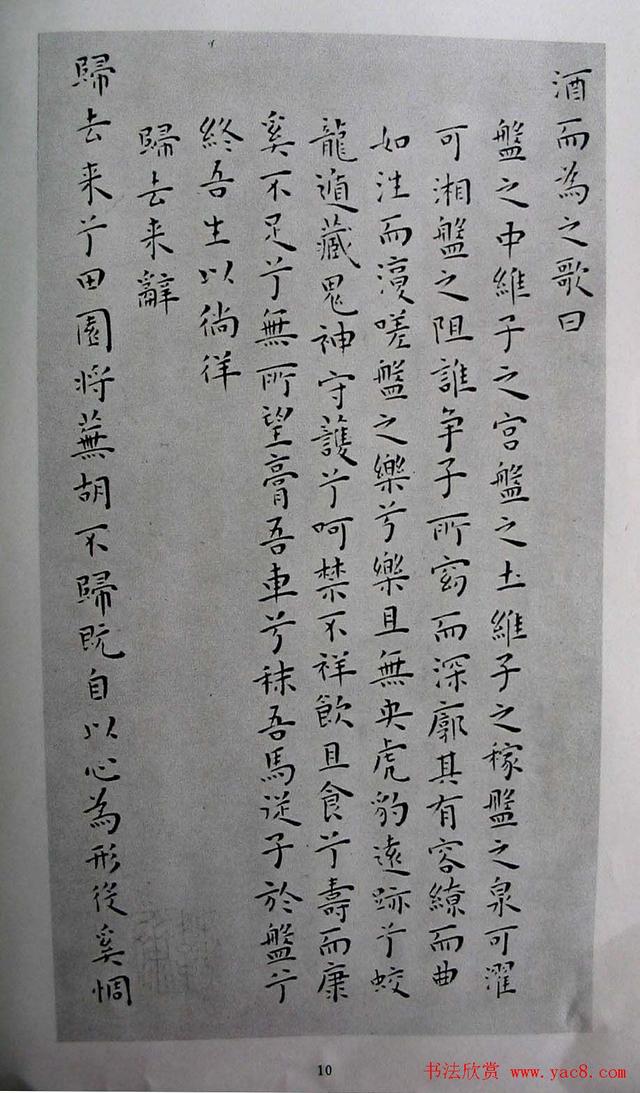 酒而為之歌曰
盤之中維子之宫盤之土維子之稼盤之泉可濯
可湘盤之阻誰争子所窈而深廓其有容繚而曲
如往而澓嗟盤之樂兮樂且無央虎豹遠跡兮蛟
龍遁藏鬼神守護兮呵禁不祥飲且食兮壽而康
奚不足兮無所望膏吾車兮秣吾馬從子於盤兮
終吾生以徜徉
歸去来辭
歸去来兮田園将蕪胡不歸既自以心為形役奚惆
10
书法欣赏 www.yac8.com